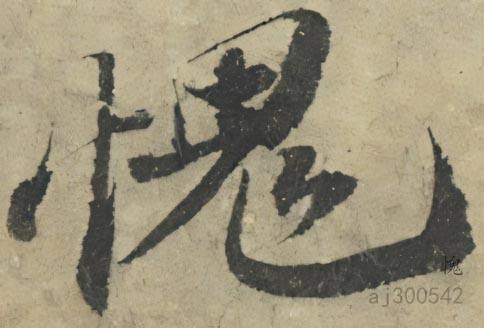 愧
愧
aj300542